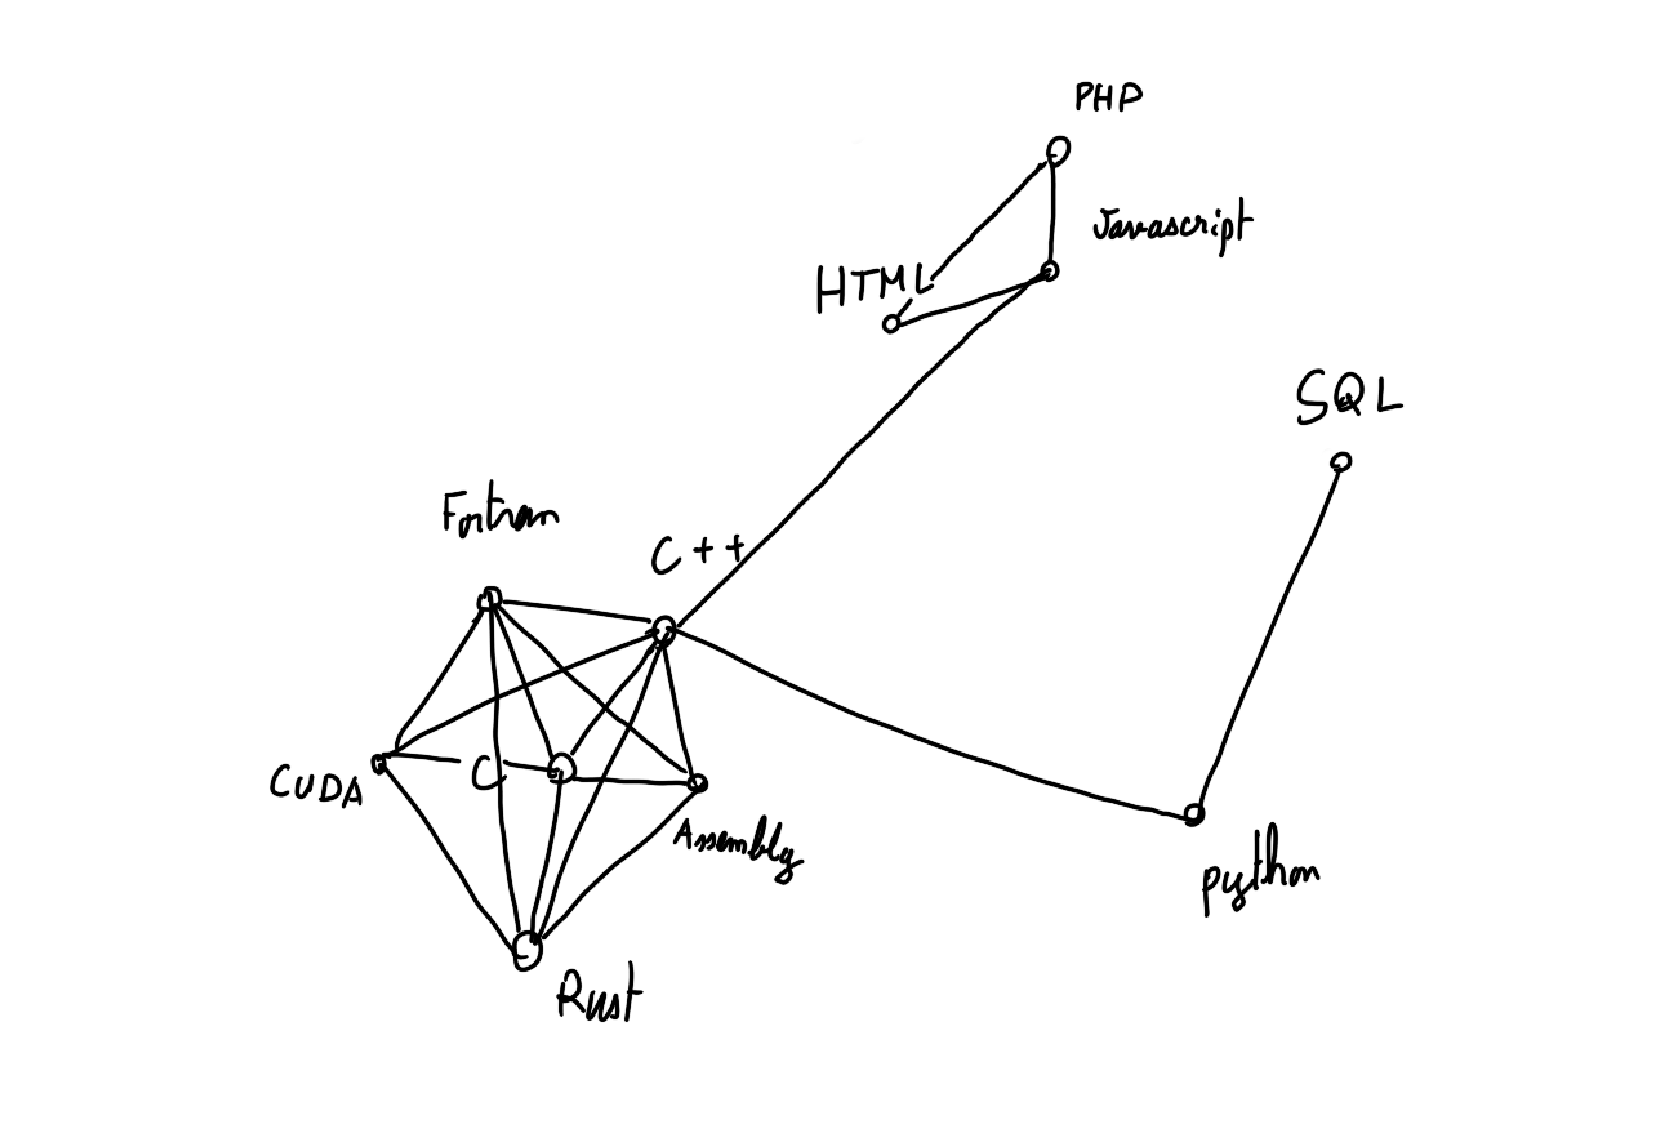 PHP
Javascript
HTML
SQL
Fortran
C++
CUDA
C
Assembly
python
Rust